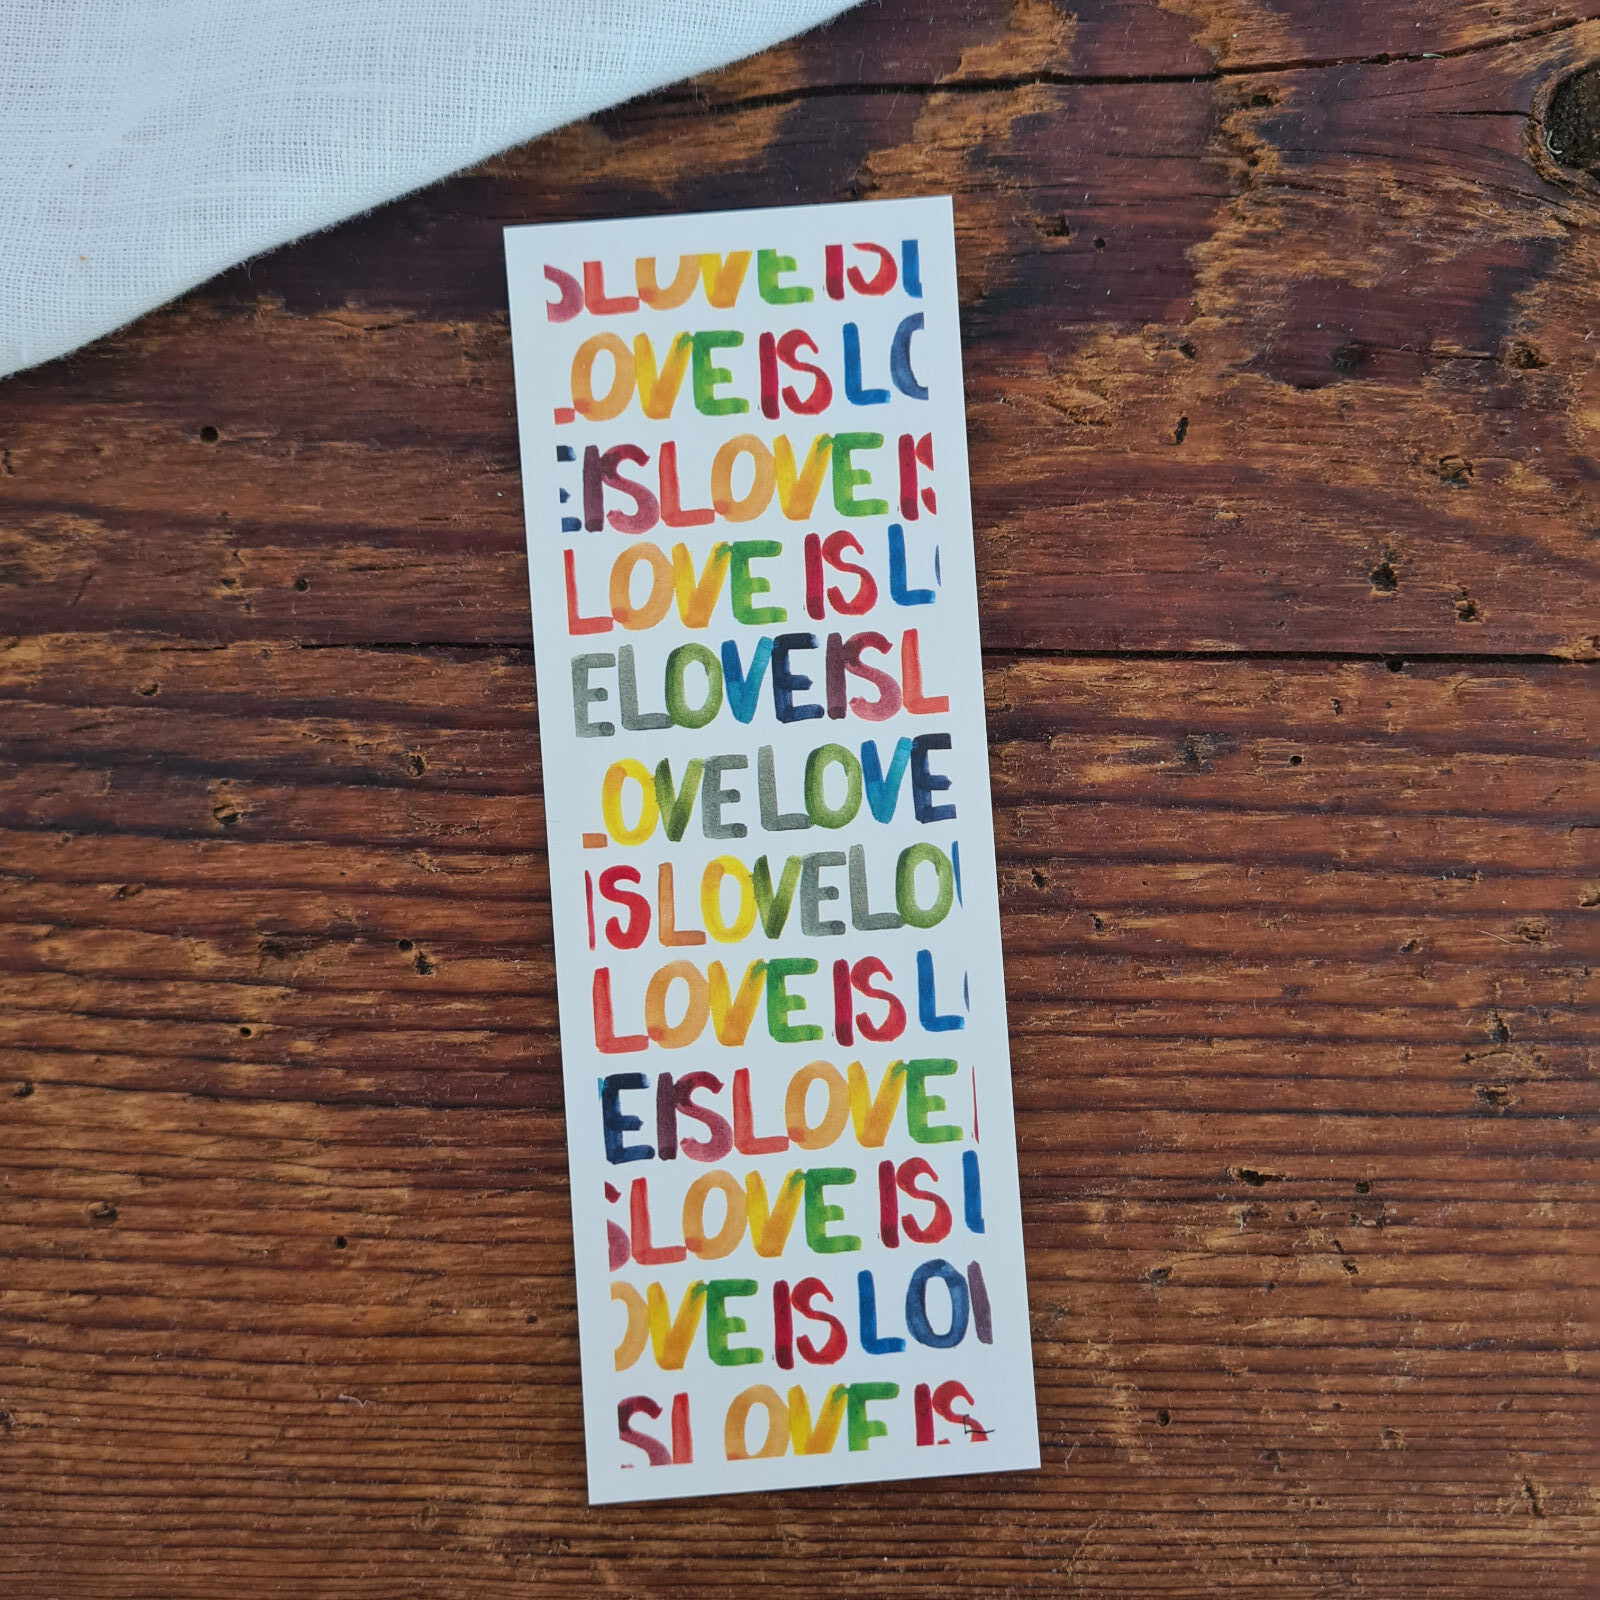 S LOVE IS L
LOVE IS LO
E IS LOVE IS
LOVE IS L
E LOVE IS L
LOVE LOVE
IS LOVE LO
LOVE IS L
E IS LOVE
S LOVE IS L
OVE IS LO
S LOVE IS